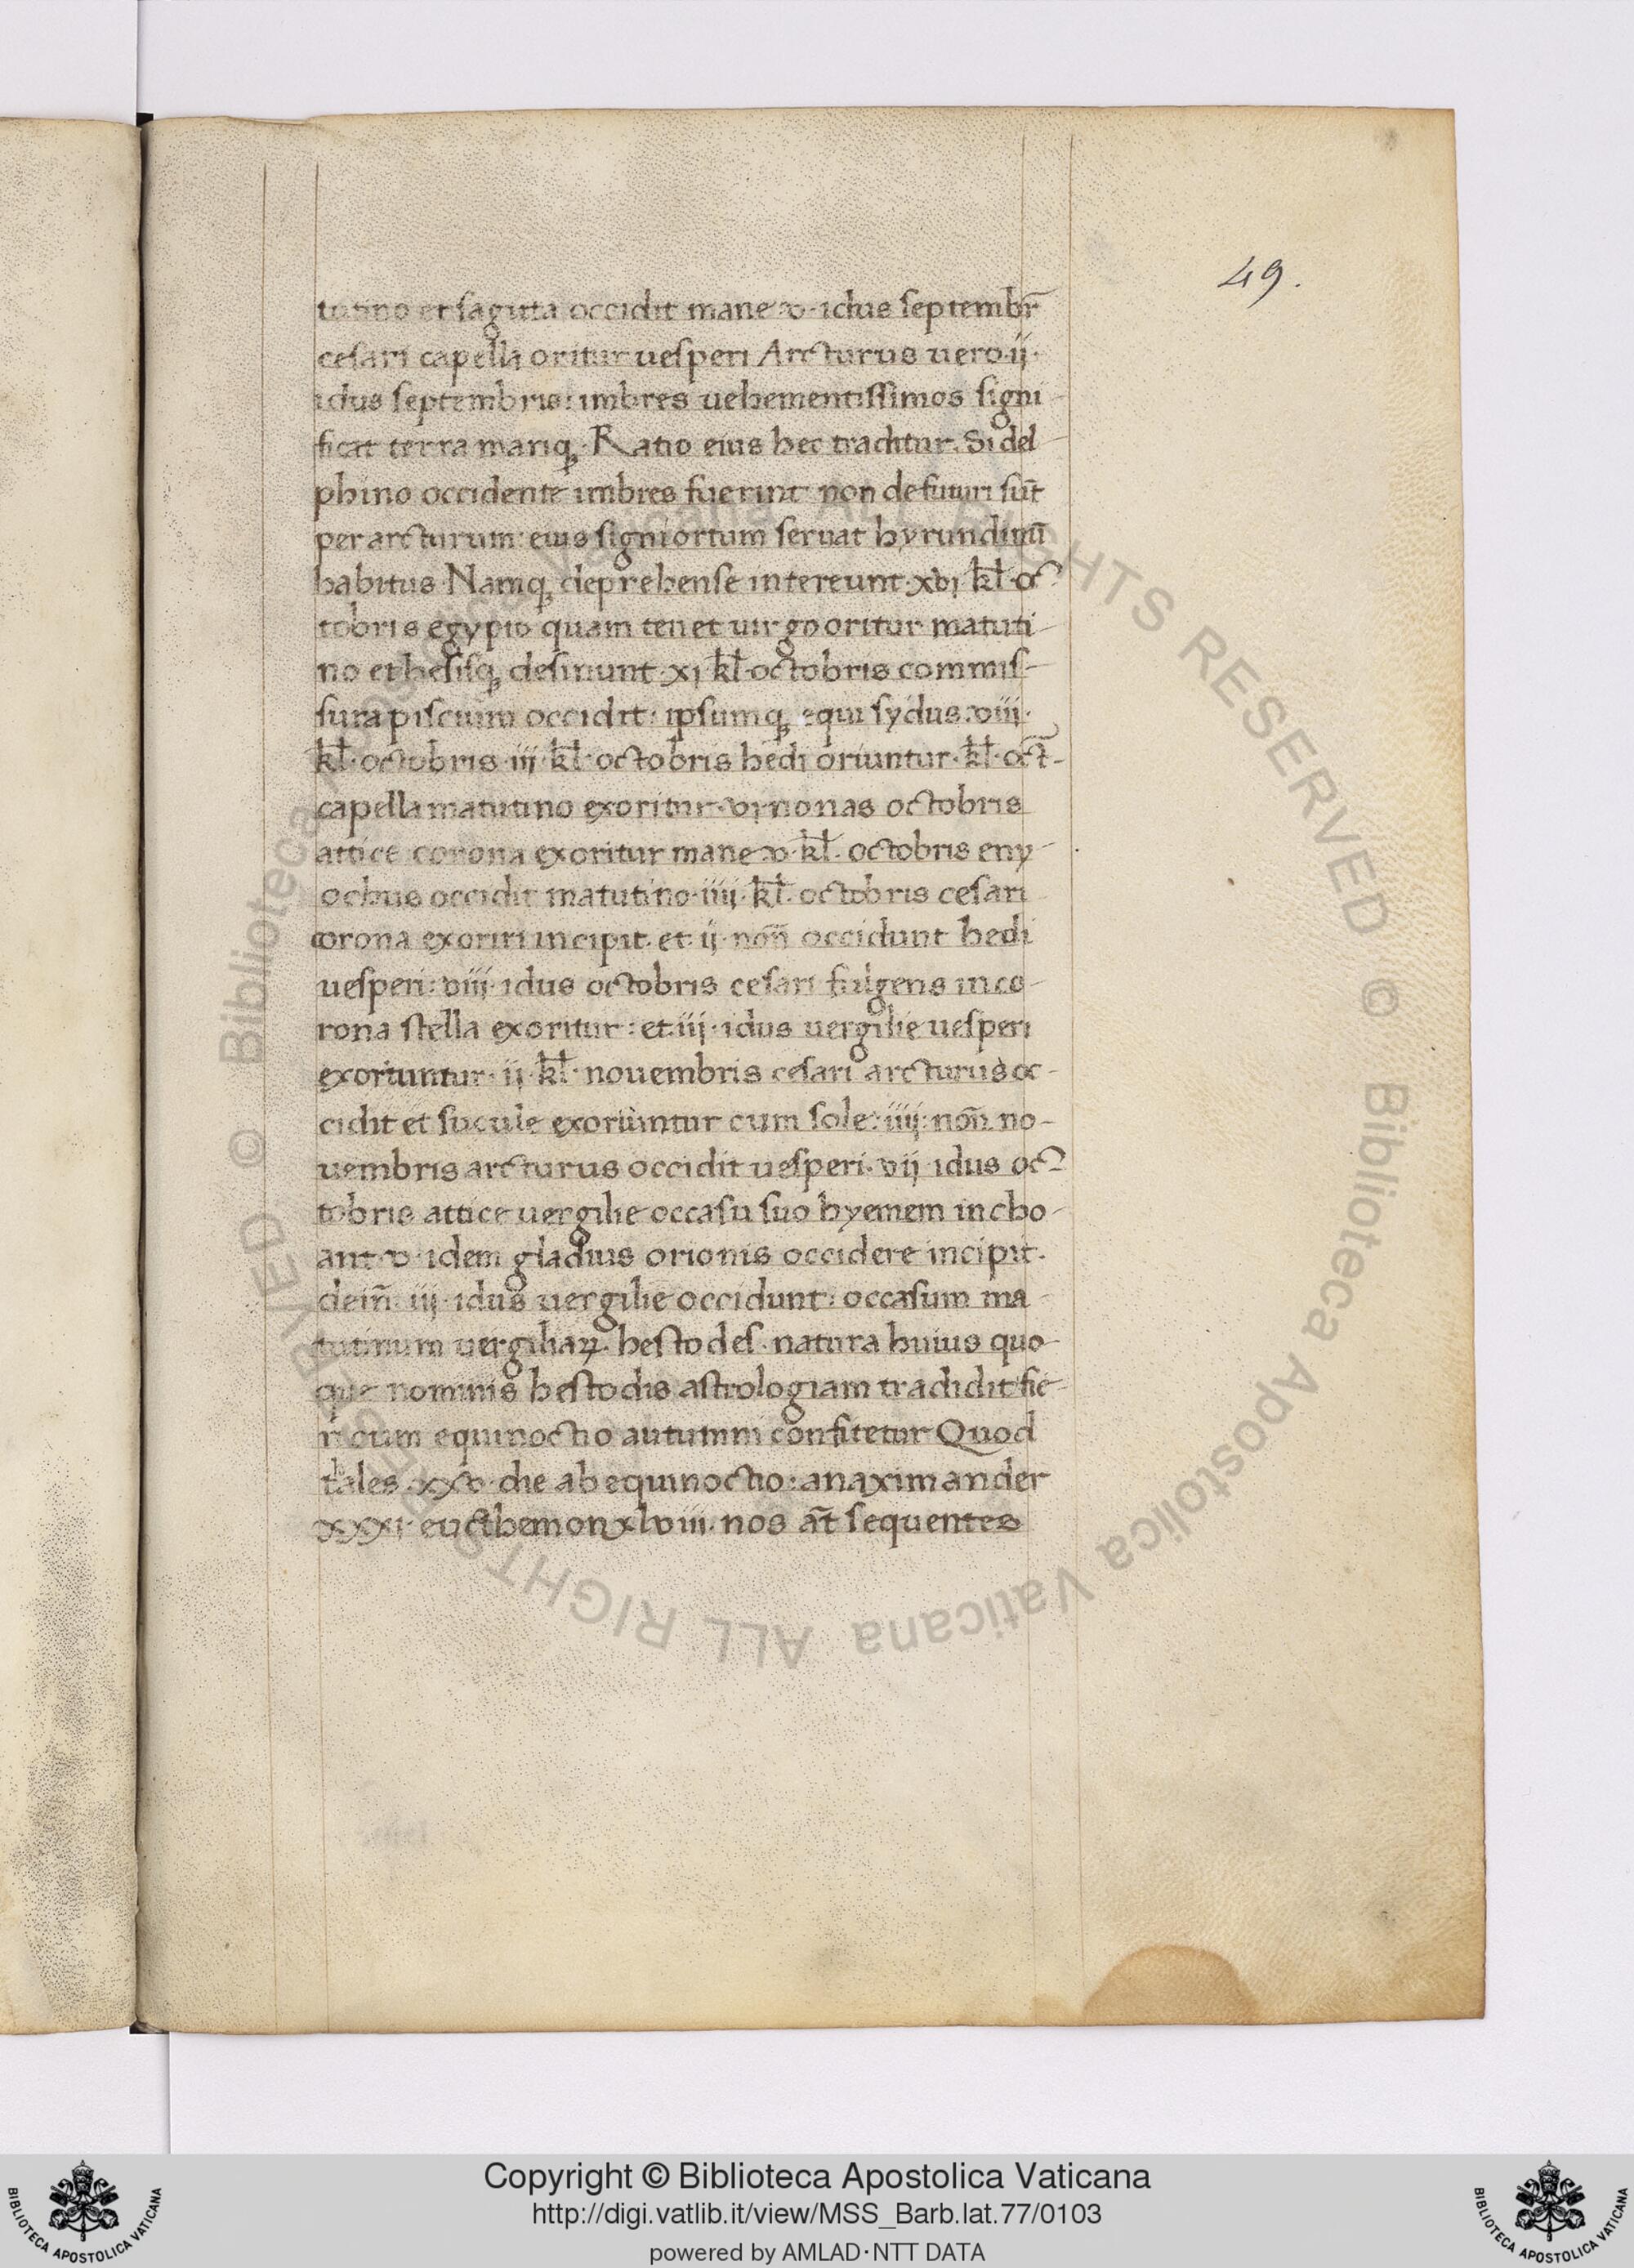 49.
tutino et sagitta occidit mane v· idus septembr̄
cesari capella oritur uesperi Arcturus uero·ij·
idus septembris: imbres uehementissimos signi-
ficat terra mariq; Ratio eius hec traditur. Si del-
phino occidente imbres fuerint non defuturi sūt
per arcturum: eius signi ortum seruat hyrundinū
habitus Namq; deprehense intereunt·xvj k̄l·oc-
tobris egypto quam tenet uirgo oritur matuti-
no ethesisq; desinunt·xj k̄l·octobris commis-
sura piscium occidit: ipsumq; equi sydus·viij·
k̄l·octobris·iij·k̄l·octobris hedi oriuntur·k̄l·oct̄-
capella matutino exoritur·vj nonas octobris
attice corona exoritur mane v·k̄l·octobris eny-
ochus occidit matutino·iiij·k̄l·octobris cesari
corona exoriri incipit·et·ij·non̄ occidunt hedi
uesperi: viij·idus octobris cesari fulgens in co-
rona stella exoritur: et iij·idus uergilie uesperi
exoriuntur·ij·k̄l·nouembris cesari arcturus oc-
cidit et sucule exoriuntur cum sole: iiij·nōn. no-
uembris arcturus occidit uesperi·vij idus oc-
tobris attice uergilie occasu suo hyemem incho-
ant·v·idem gladius orionis occidere incipit·
dein̄ iij·idus uergilie occidunt: occasum ma-
tutinum uergiliaꝝ·hestodes·natura huius quo-
que nominis hestodis astrologiam tradidit fie-
ri cum equinoctio autumni confitetur Quod
tales·xxv·die ab equinoctio: anaximander
xxxj·eucthemon xlviii·nos at̄ sequentes
Copyright © Biblioteca Apostolica Vaticana
http://digi.vatlib.it/view/MSS_Barb.lat.77/0103
powered by AMLAD·NTT DATA
BIBLIOTECA APOSTOLICA VATICANA
BIBLIOTECA APOSTOLICA VATICANA
© Biblioteca Apostolica Vaticana ALL RIGHTS RESERVED © Biblioteca Apostolica Vaticana ALL RIGHTS RESERVED